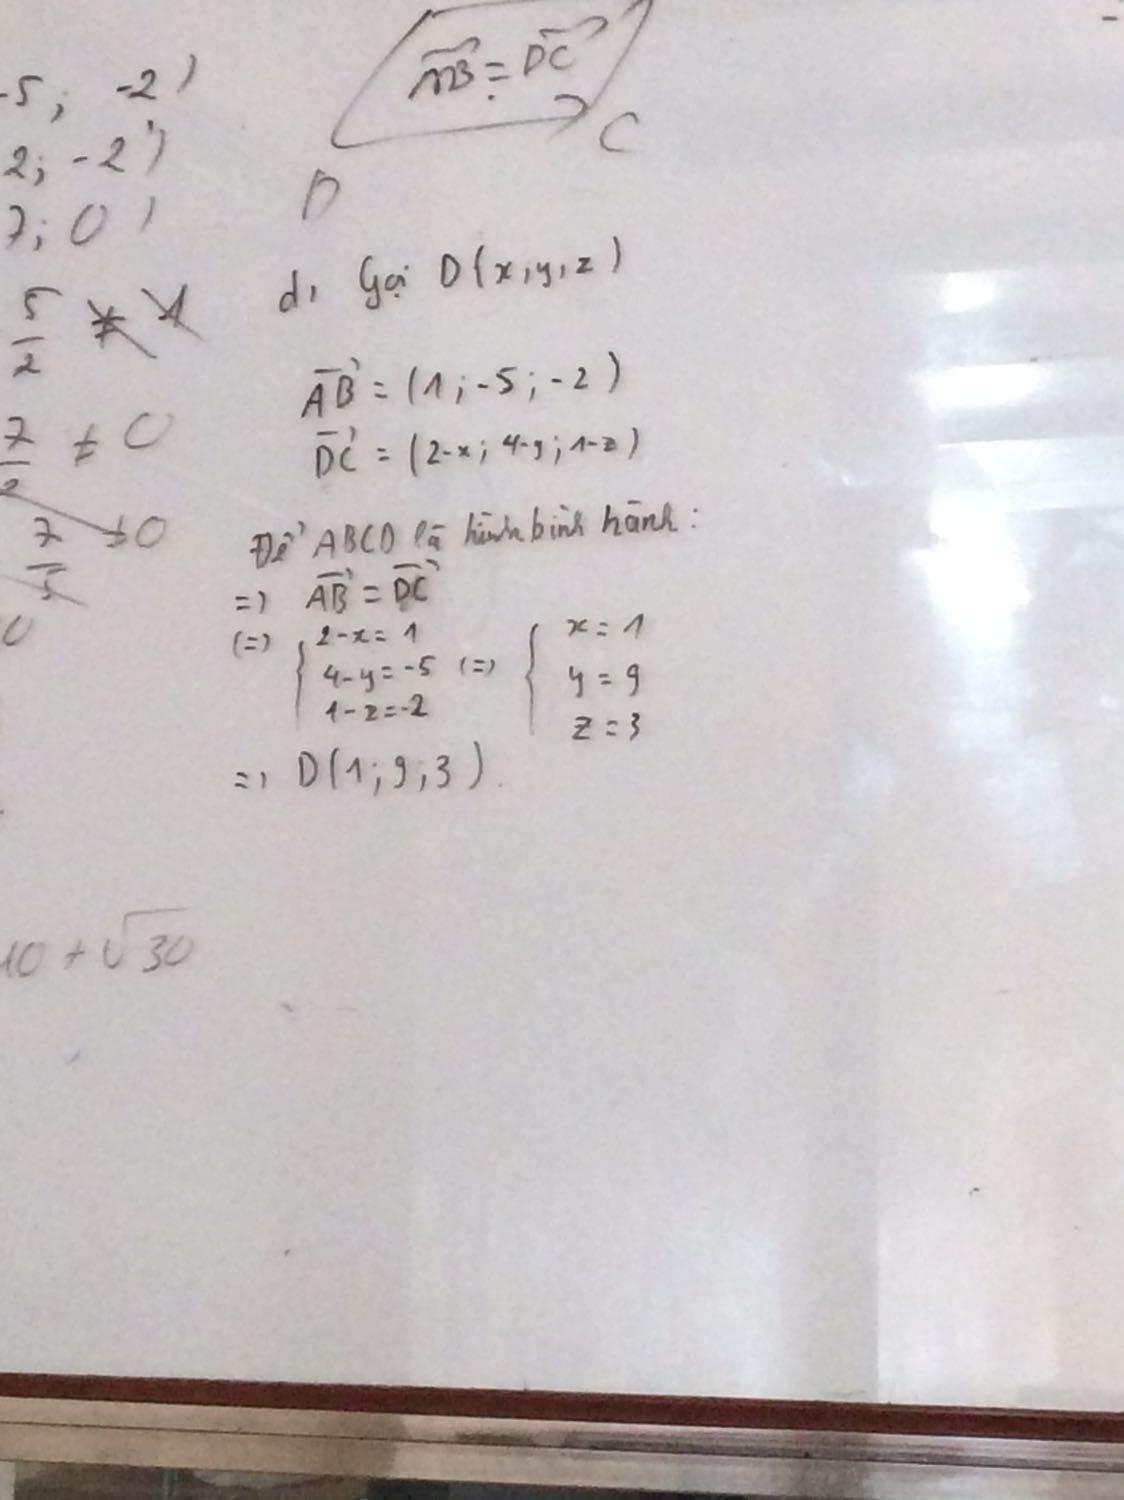 -5; -2)
2; -2)
7; 0)
5/2
7/2 ≠ 0
7/5 ≠ 0
0
10 + √30
AB = DC
D C
d, Gọi D(x, y, z)
AB = (1; -5; -2)
DC = (2-x; 4-y; 1-z)
Để ABCD là hình bình hành:
=> AB = DC
(=) { 2-x = 1 4-y = -5 1-z = -2 (=) { x = 1 y = 9 z = 3
=> D(1; 9; 3).